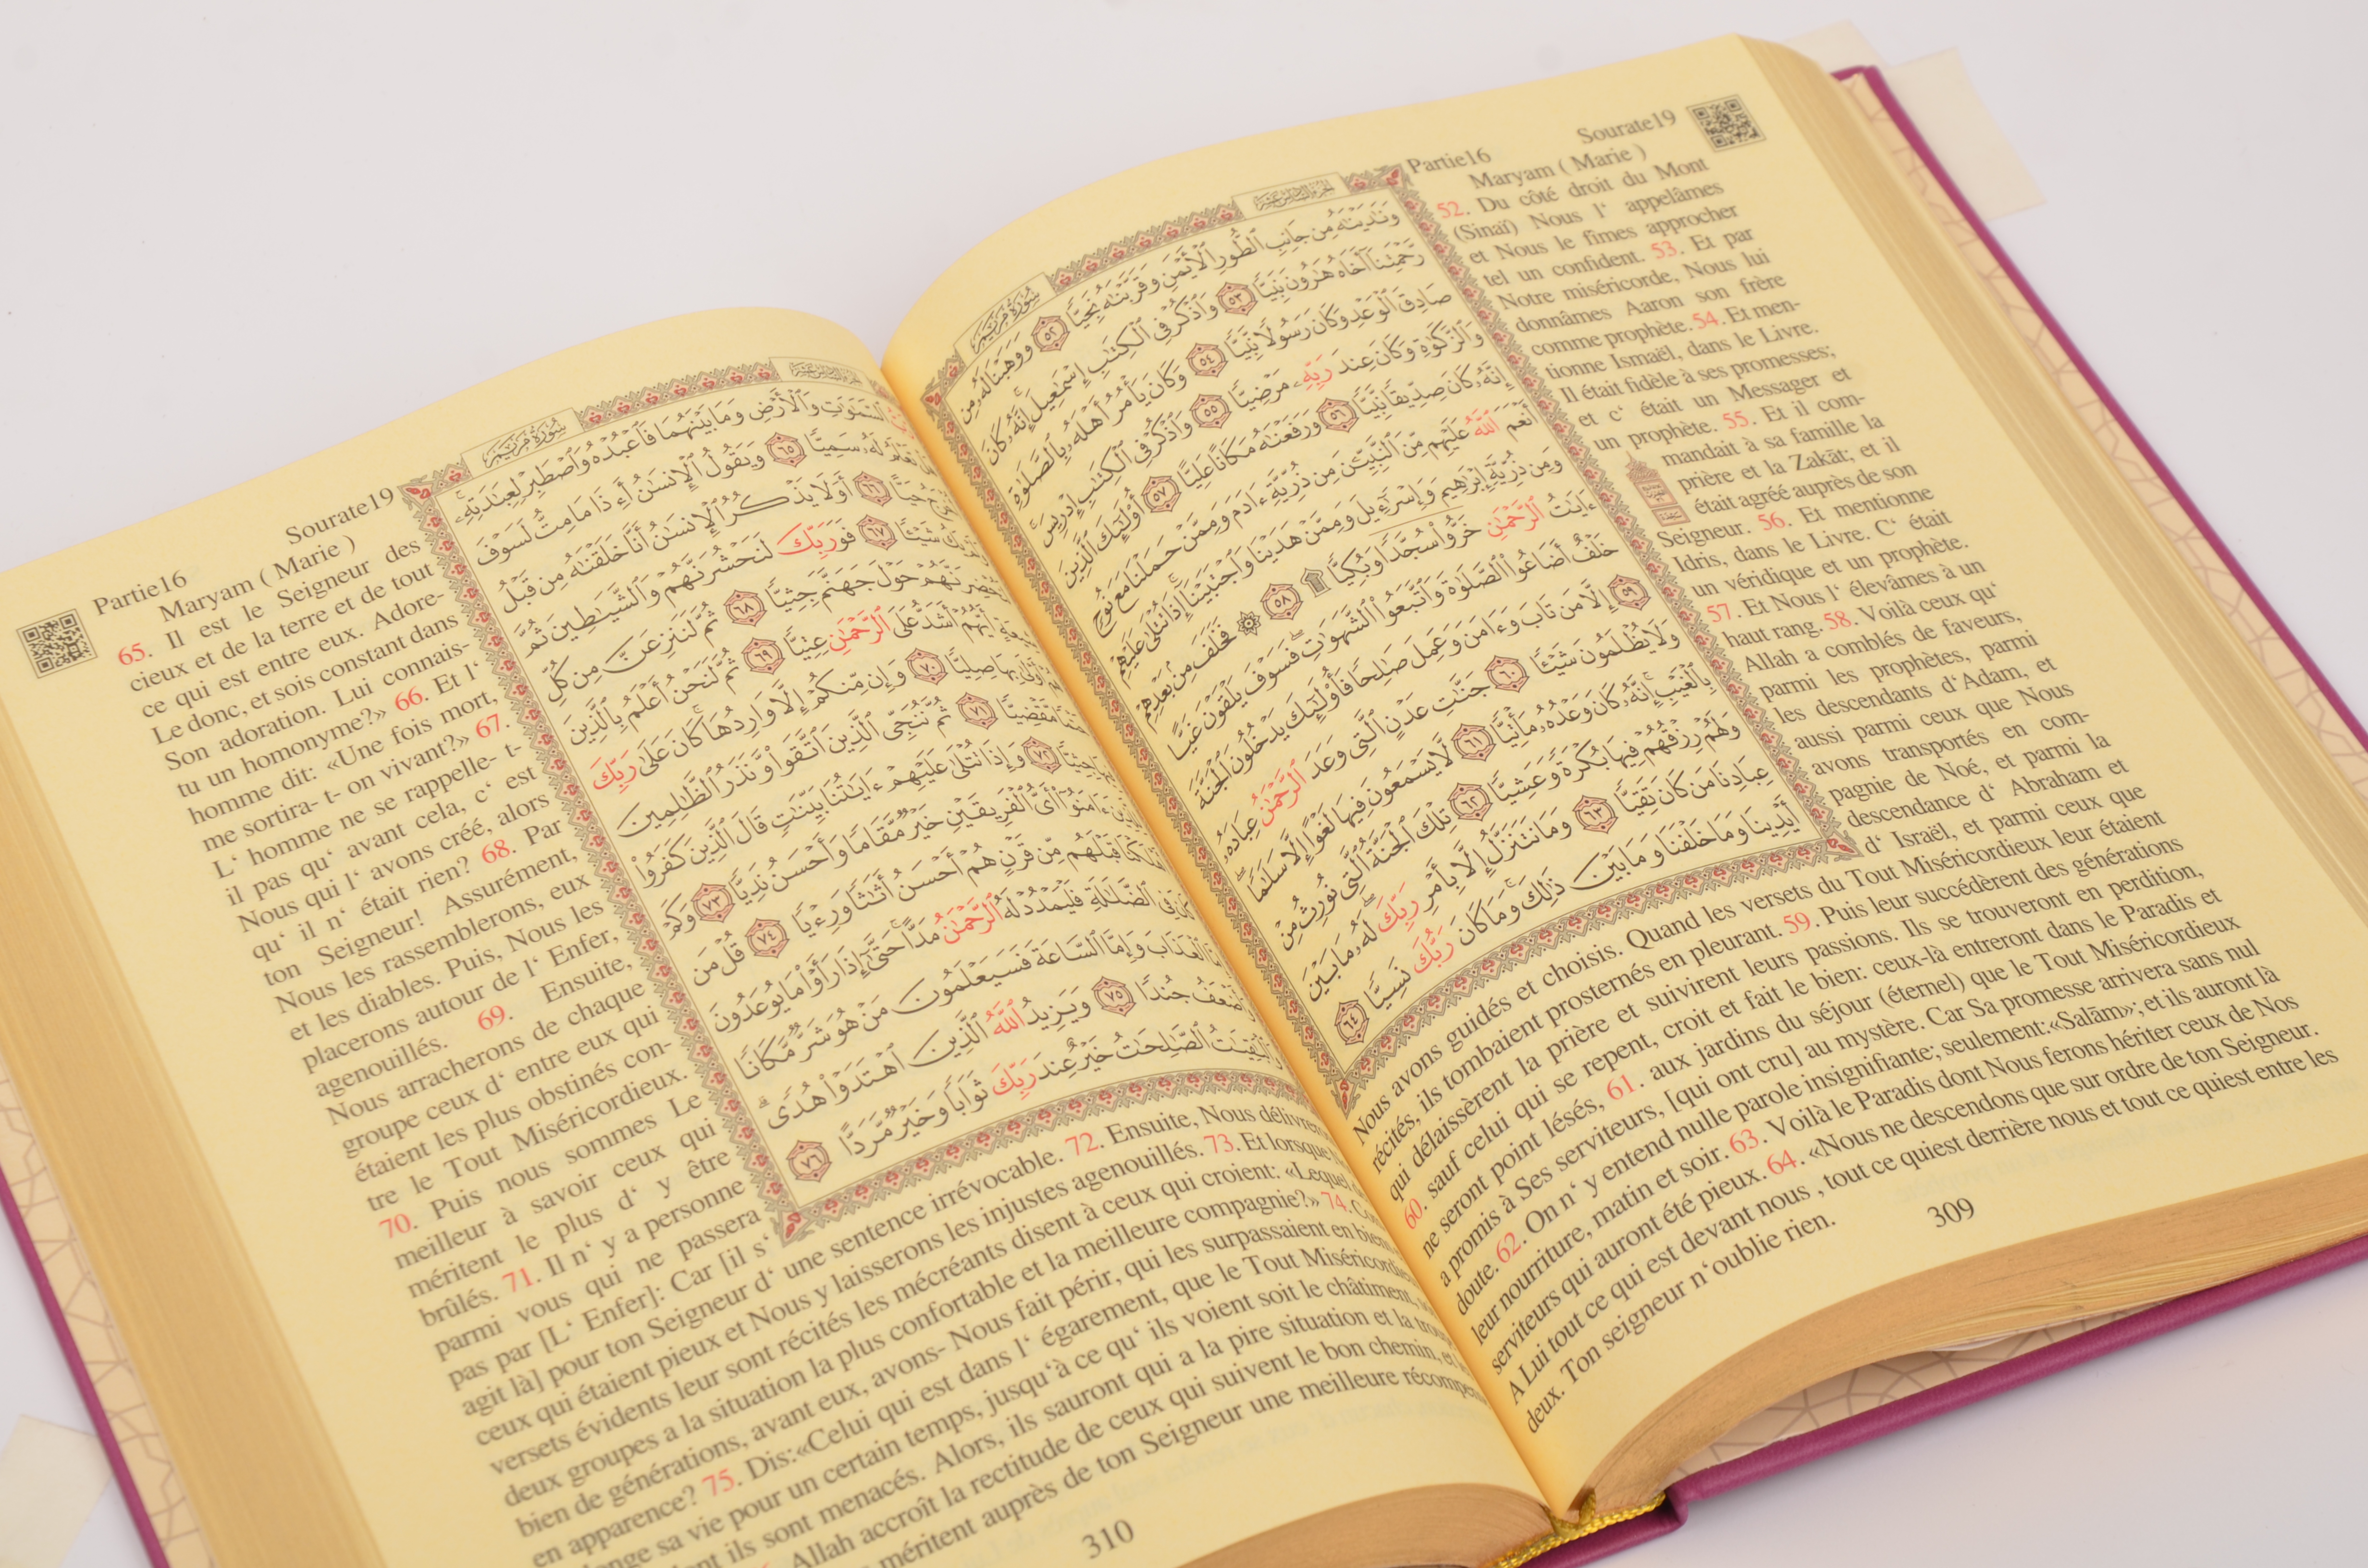 Partie16 Sourate19
Maryam ( Marie )
52. Du côté droit du Mont
(Sinaï) Nous l‘ appelâmes
et Nous le fîmes approcher
tel un confident. 53. Et par
Notre miséricorde, Nous lui
donnâmes Aaron son frère
comme prophète. 54. Et men-
tionne Ismaël, dans le Livre.
Il était fidèle à ses promesses;
et c‘ était un Messager et
un prophète. 55. Et il com-
mandait à sa famille la
prière et la Zakāt; et il
était agréé auprès de son
Seigneur. 56. Et mentionne
Idris, dans le Livre. C‘ était
un véridique et un prophète.
57. Et Nous l‘ élevâmes à un
haut rang. 58. Voilà ceux qu‘
Allah a comblés de faveurs,
parmi les prophètes, parmi
les descendants d‘Adam, et
aussi parmi ceux que Nous
avons transportés en com-
pagnie de Noé, et parmi la
descendance d‘ Abraham et
d‘ Israël, et parmi ceux que
Nous avons guidés et choisis. Quand les versets du Tout Miséricordieux leur étaient
récités, ils tombaient prosternés en pleurant. 59. Puis leur succédèrent des générations
qui délaissèrent la prière et suivirent leurs passions. Ils se trouveront en perdition,
60. sauf celui qui se repent, croit et fait le bien: ceux-là entreront dans le Paradis et
ne seront point lésés, 61. aux jardins du séjour (éternel) que le Tout Miséricordieux
a promis à Ses serviteurs, [qui ont cru] au mystère. Car Sa promesse arrivera sans nul
doute. 62. On n‘ y entend nulle parole insignifiante; seulement:«Salām»; et ils auront là
leur nourriture, matin et soir. 63. Voilà le Paradis dont Nous ferons hériter ceux de Nos
serviteurs qui auront été pieux. 64. «Nous ne descendons que sur ordre de ton Seigneur.
A Lui tout ce qui est devant nous , tout ce quiest derrière nous et tout ce quiest entre les
deux. Ton seigneur n‘oublie rien.
309
الجزء السادس عشر سورة مريم
وَنَٰدَيۡنَٰهُ مِن جَانِبِ ٱلطُّورِ ٱلۡأَيۡمَنِ وَقَرَّبۡنَٰهُ نَجِيّٗا ٥٢ وَوَهَبۡنَا لَهُۥ مِن
رَّحۡمَتِنَآ أَخَاهُ هَٰرُونَ نَبِيّٗا ٥٣ وَٱذۡكُرۡ فِي ٱلۡكِتَٰبِ إِسۡمَٰعِيلَۚ إِنَّهُۥ كَانَ
صَادِقَ ٱلۡوَعۡدِ وَكَانَ رَسُولٗا نَّبِيّٗا ٥٤ وَكَانَ يَأۡمُرُ أَهۡلَهُۥ بِٱلصَّلَوٰةِ
وَٱلزَّكَوٰةِ وَكَانَ عِندَ رَبِّهِۦ مَرۡضِيّٗا ٥٥ وَٱذۡكُرۡ فِي ٱلۡكِتَٰبِ إِدۡرِيسَۚ
إِنَّهُۥ كَانَ صِدِّيقٗا نَّبِيّٗا ٥٦ وَرَفَعۡنَٰهُ مَكَانًا عَلِيًّا ٥٧ أُوْلَٰٓئِكَ ٱلَّذِينَ
أَنۡعَمَ ٱللَّهُ عَلَيۡهِم مِّنَ ٱلنَّبِيِّـۧنَ مِن ذُرِّيَّةِ ءَادَمَ وَمِمَّنۡ حَمَلۡنَا مَعَ نُوحٖ
وَمِن ذُرِّيَّةِ إِبۡرَٰهِيمَ وَإِسۡرَٰٓءِيلَ وَمِمَّنۡ هَدَيۡنَا وَٱجۡتَبَيۡنَآۚ إِذَا تُتۡلَىٰ عَلَيۡهِمۡ
ءَايَٰتُ ٱلرَّحۡمَٰنِ خَرُّواْ سُجَّدٗا وَبُكِيّٗا ۩ ٥٨ ۞ فَخَلَفَ مِنۢ بَعۡدِهِمۡ
خَلۡفٌ أَضَاعُواْ ٱلصَّلَوٰةَ وَٱتَّبَعُواْ ٱلشَّهَوَٰتِۖ فَسَوۡفَ يَلۡقَوۡنَ غَيًّا
٥٩ إِلَّا مَن تَابَ وَءَامَنَ وَعَمِلَ صَٰلِحٗا فَأُوْلَٰٓئِكَ يَدۡخُلُونَ ٱلۡجَنَّةَ
وَلَا يُظۡلَمُونَ شَيۡـٔٗا ٦٠ جَنَّٰتِ عَدۡنٍ ٱلَّتِي وَعَدَ ٱلرَّحۡمَٰنُ عِبَادَهُۥ
بِٱلۡغَيۡبِۚ إِنَّهُۥ كَانَ وَعۡدُهُۥ مَأۡتِيّٗا ٦١ لَّا يَسۡمَعُونَ فِيهَا لَغۡوًا إِلَّا سَلَٰمٗاۖ
وَلَهُمۡ رِزۡقُهُمۡ فِيهَا بُكۡرَةٗ وَعَشِيّٗا ٦٢ تِلۡكَ ٱلۡجَنَّةُ ٱلَّتِي نُورِثُ مِنۡ
عِبَادِنَا مَن كَانَ تَقِيّٗا ٦٣ وَمَا نَتَنَزَّلُ إِلَّا بِأَمۡرِ رَبِّكَۖ لَهُۥ مَا بَيۡنَ
أَيۡدِينَا وَمَا خَلۡفَنَا وَمَا بَيۡنَ ذَٰلِكَۚ وَمَا كَانَ رَبُّكَ نَسِيّٗا ٦٤
Partie16 Sourate19
Maryam ( Marie )
65. Il est le Seigneur des
cieux et de la terre et de tout
ce qui est entre eux. Adore-
Le donc, et sois constant dans
Son adoration. Lui connais-
tu un homonyme?» 66. Et l‘
homme dit: «Une fois mort,
me sortira- t- on vivant?» 67.
L‘ homme ne se rappelle- t-
il pas qu‘ avant cela, c‘ est
Nous qui l‘ avons créé, alors
qu‘ il n‘ était rien? 68. Par
ton Seigneur! Assurément,
Nous les rassemblerons, eux
et les diables. Puis, Nous les
placerons autour de l‘ Enfer,
agenouillés. 69. Ensuite,
Nous arracherons de chaque
groupe ceux d‘ entre eux qui
étaient les plus obstinés con-
tre le Tout Miséricordieux.
70. Puis nous sommes Le
meilleur à savoir ceux qui
méritent le plus d‘ y être
brûlés. 71. Il n‘ y a personne
parmi vous qui ne passera
pas par [L‘ Enfer]: Car [il s‘
agit là] pour ton Seigneur d‘ une sentence irrévocable. 72. Ensuite, Nous
ceux qui étaient pieux et Nous y laisserons les injustes agenouillés. 73. Et lorsque
versets évidents leur sont récités les mécréants disent à ceux qui croient: «Lequel
deux groupes a la situation la plus confortable et la meilleure compagnie?» 74.
bien de générations, avant eux, avons- Nous fait périr, qui les surpassaient en
en apparence? 75. Dis:«Celui qui est dans l‘ égarement, que le Tout
sa vie pour un certain temps, jusqu‘à ce qu‘ ils voient soit le châtiment,
ils sont menacés. Alors, ils sauront qui a la pire situation et la
Allah accroît la rectitude de ceux qui suivent le bon chemin,
méritent auprès de ton Seigneur une meilleure
310
الجزء السادس عشر سورة مريم
ٱلسَّمَٰوَٰتِ وَٱلۡأَرۡضِ وَمَا بَيۡنَهُمَا فَٱعۡبُدۡهُ وَٱصۡطَبِرۡ لِعِبَٰدَتِهِۦۚ
لَهُۥ سَمِيّٗا ٦٥ وَيَقُولُ ٱلۡإِنسَٰنُ أَءِذَا مَا مِتُّ لَسَوۡفَ
حَيًّا ٦٦ أَوَلَا يَذۡكُرُ ٱلۡإِنسَٰنُ أَنَّا خَلَقۡنَٰهُ مِن قَبۡلُ
شَيۡـٔٗا ٦٧ فَوَرَبِّكَ لَنَحۡشُرَنَّهُمۡ وَٱلشَّيَٰطِينَ ثُمَّ
حَوۡلَ جَهَنَّمَ جِثِيّٗا ٦٨ ثُمَّ لَنَنزِعَنَّ مِن كُلِّ
أَيُّهُمۡ أَشَدُّ عَلَى ٱلرَّحۡمَٰنِ عِتِيّٗا ٦٩ ثُمَّ لَنَحۡنُ أَعۡلَمُ بِٱلَّذِينَ
بِهَا صِلِيّٗا ٧٠ وَإِن مِّنكُمۡ إِلَّا وَارِدُهَاۚ كَانَ عَلَىٰ رَبِّكَ
مَّقۡضِيّٗا ٧١ ثُمَّ نُنَجِّي ٱلَّذِينَ ٱتَّقَواْ وَّنَذَرُ ٱلظَّٰلِمِينَ
جِثِيّٗا ٧٢ وَإِذَا تُتۡلَىٰ عَلَيۡهِمۡ ءَايَٰتُنَا بَيِّنَٰتٖ قَالَ ٱلَّذِينَ كَفَرُواْ
ءَامَنُوٓاْ أَيُّ ٱلۡفَرِيقَيۡنِ خَيۡرٞ مَّقَامٗا وَأَحۡسَنُ نَدِيّٗا ٧٣ وَكَمۡ
قَبۡلَهُم مِّن قَرۡنٍ هُمۡ أَحۡسَنُ أَثَٰثٗا وَرِءۡيٗا ٧٤ قُلۡ مَن
كَانَ فِي ٱلضَّلَٰلَةِ فَلۡيَمۡدُدۡ لَهُ ٱلرَّحۡمَٰنُ مَدًّاۚ حَتَّىٰٓ إِذَا رَأَوۡاْ مَا يُوعَدُونَ
ٱلۡعَذَابَ وَإِمَّا ٱلسَّاعَةَ فَسَيَعۡلَمُونَ مَنۡ هُوَ شَرّٞ مَّكَانٗا
جُندٗا ٧٥ وَيَزِيدُ ٱللَّهُ ٱلَّذِينَ ٱهۡتَدَوۡاْ هُدٗىۗ
ٱلصَّٰلِحَٰتُ خَيۡرٌ عِندَ رَبِّكَ ثَوَابٗا وَخَيۡرٞ مَّرَدًّا ٧٦